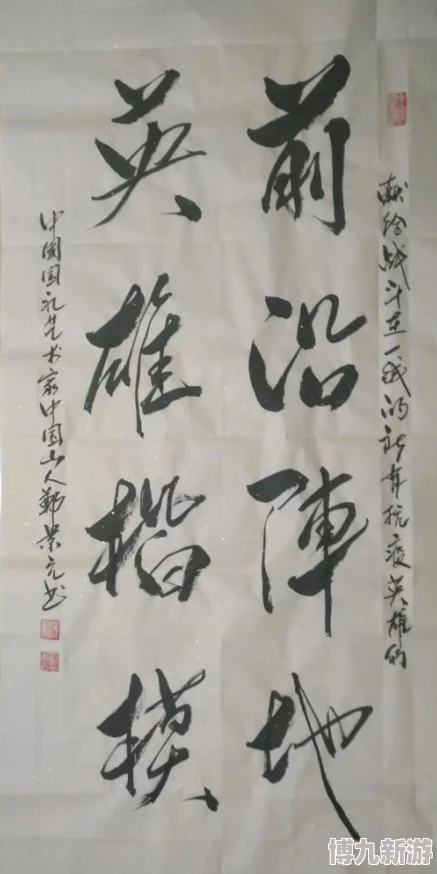 献给战斗在一线的所有抗疫英雄们
前沿陣地
英雄楷模
中国国礼艺术家中国山人鄞景元书
博九新游